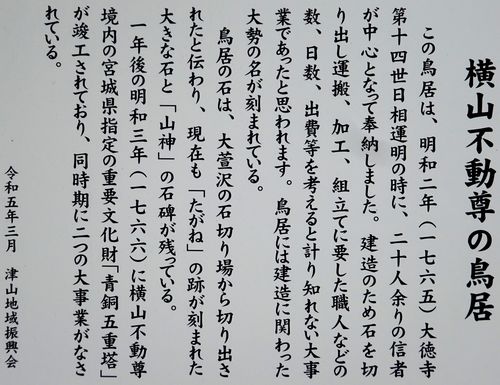 横山不動尊の鳥居
この鳥居は、明和二年（一七六五）大徳寺
第十四世日相運明の時に、二十人余りの信者
が中心となって奉納しました。建造のため石を切
り出し運搬、加工、組立てに要した職人などの
数、日数、出費等を考えると計り知れない大事
業であったと思われます。鳥居には建造に関わった
大勢の名が刻まれている。
鳥居の石は、大萱沢の石切り場から切り出さ
れたと伝わり、現在も「たがね」の跡が刻まれた
大きな石と「山神」の石碑が残っている。
一年後の明和三年（一七六六）に横山不動尊
境内の宮城県指定の重要文化財「青銅五重塔」
が竣工されており、同時期に二つの大事業がなさ
れている。
令和五年三月　津山地域振興会